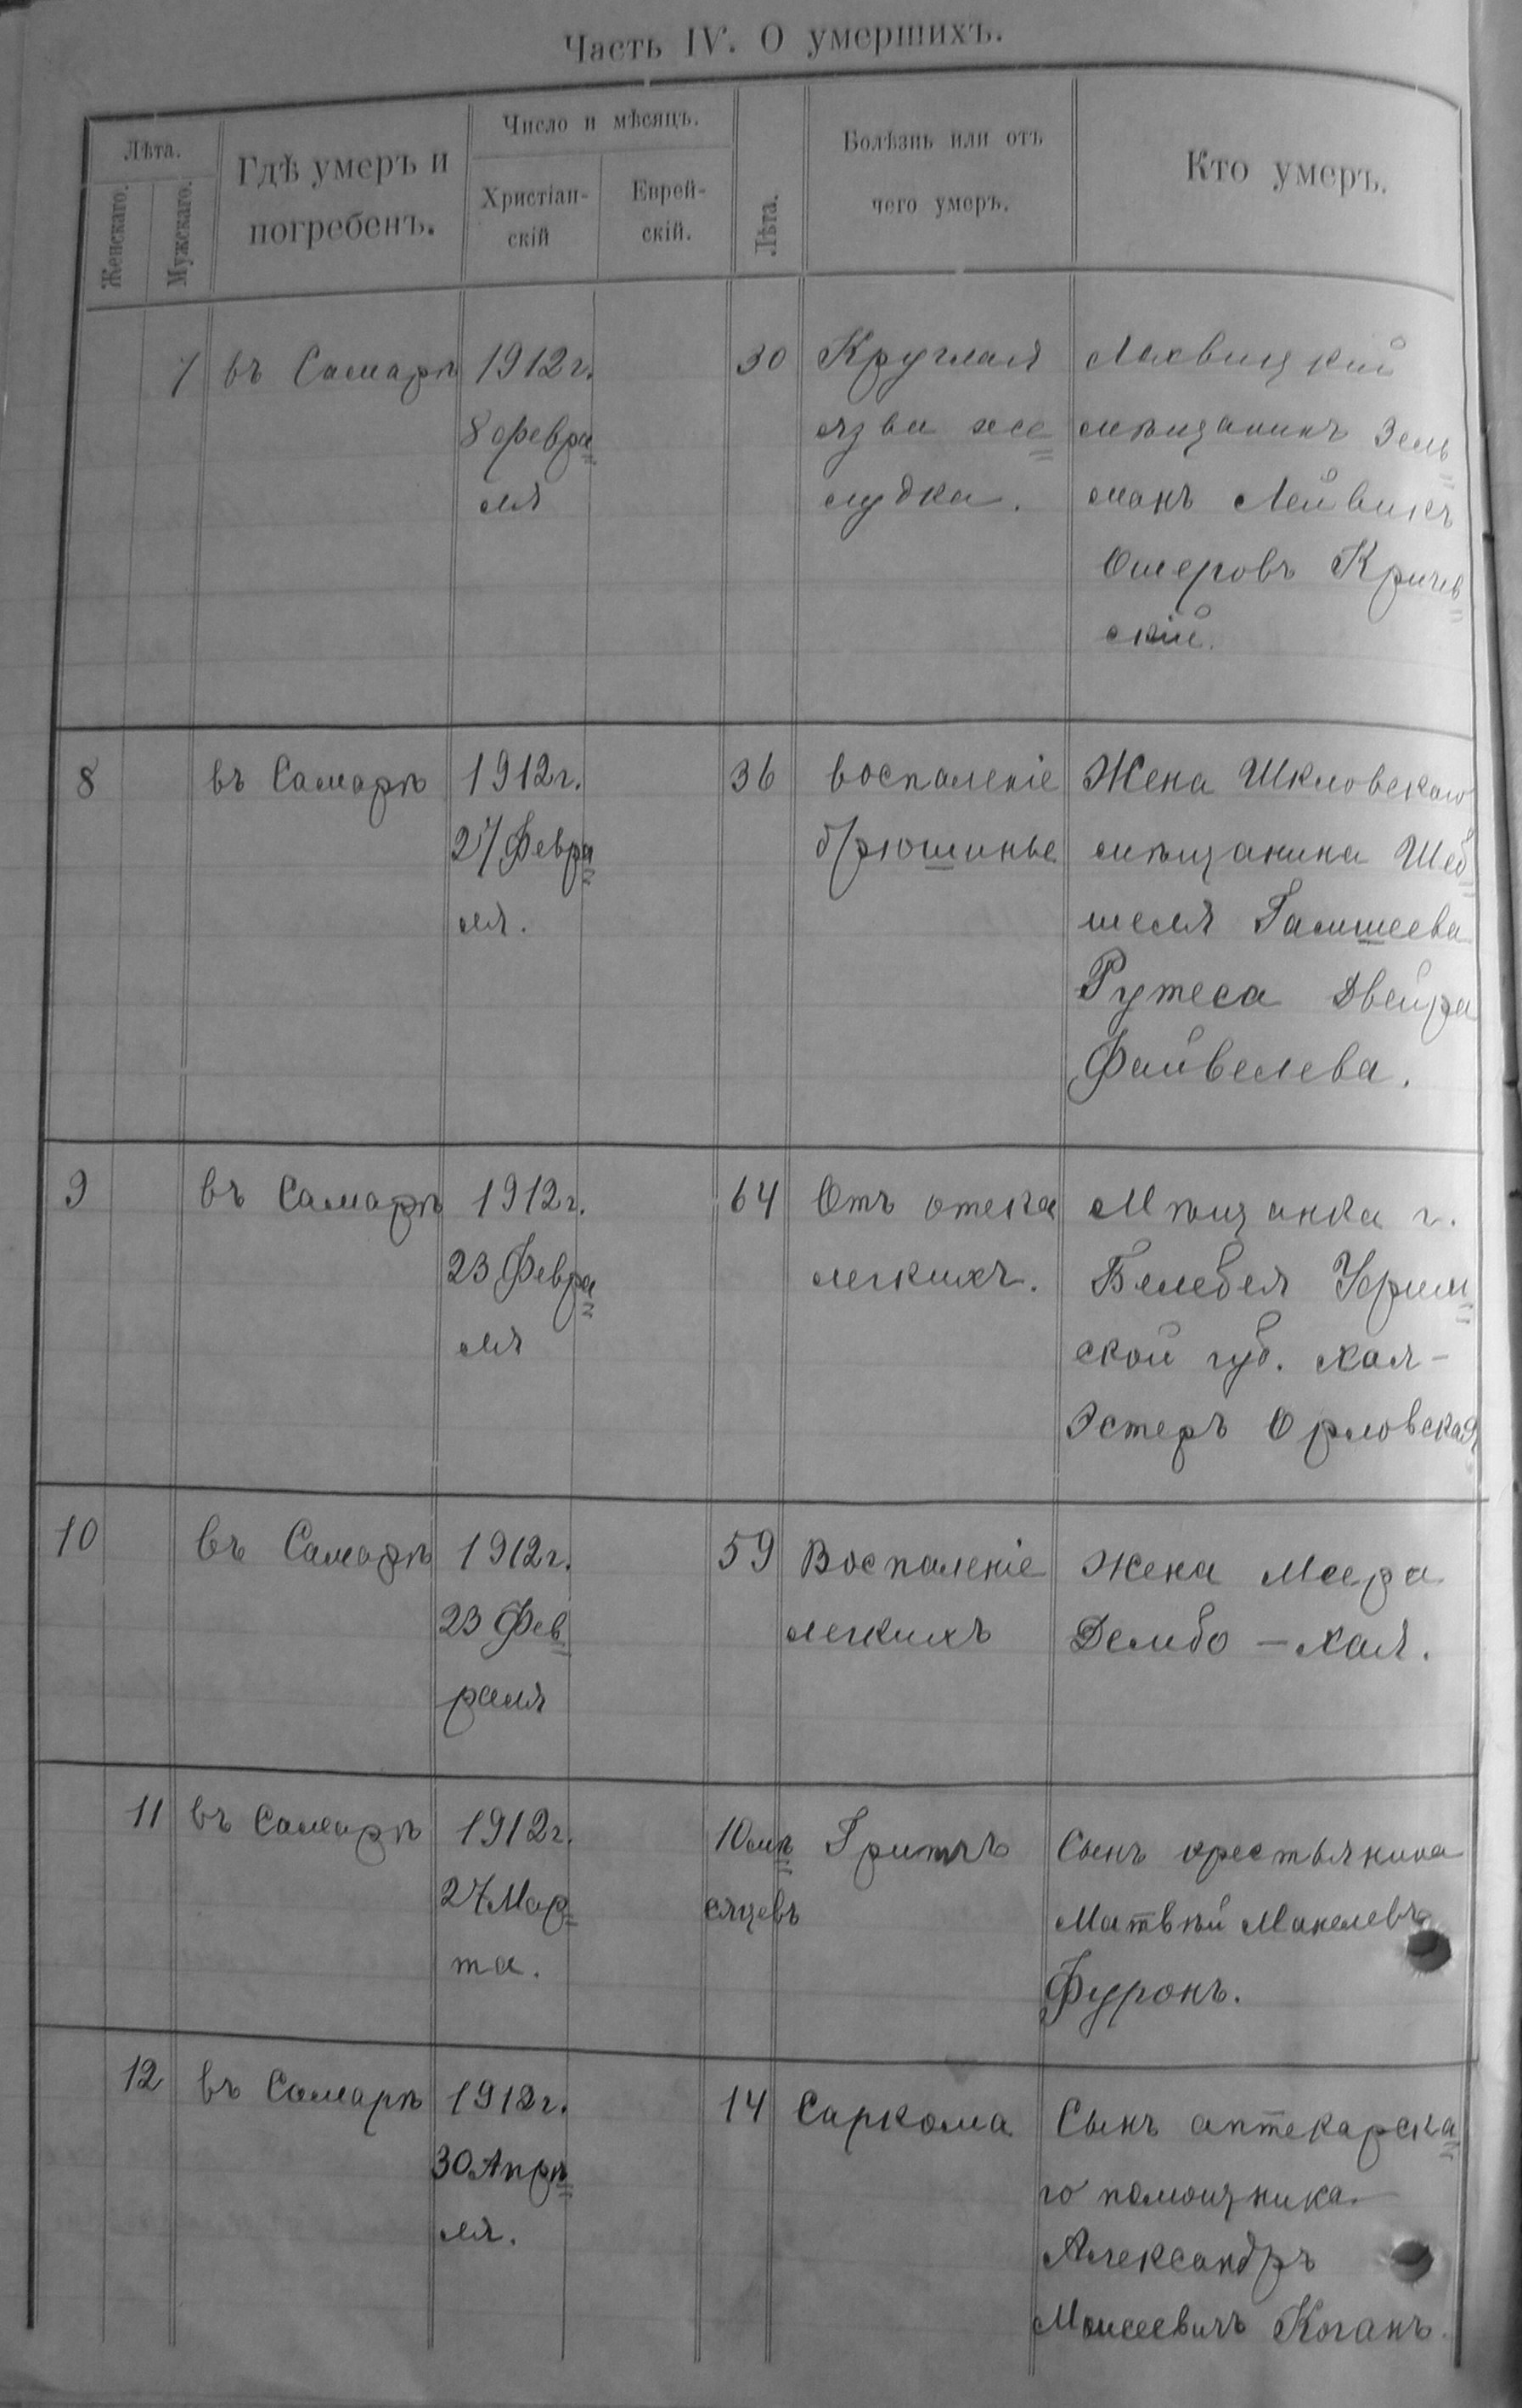 Часть IV. О умершихъ.
Лѣта.
Женскаго.
Мужскаго.
Гдѣ умеръ и
погребенъ.
Число и мѣсяцъ.
Христіан-
скій
Еврей-
скій.
Лѣта.
Болѣзнь или отъ
чего умеръ.
Кто умеръ.
7
въ Самарѣ
1912 г.
8 февра
ля
30
Круглая
язва же
лудка.
Лохвицкій
мѣщанинъ Зель
манъ Лейвикъ
Ошеровъ Кричев
скій.
8
въ Самарѣ
1912 г.
27 Февра
ля.
36
воспаленіе
брюшины
Жена Шкловскаго
мѣщанина Шеб
шеля Гамшеева
Рутеса Двейра
Файвелева.
9
въ Самарѣ
1912 г.
23 Февра
ля
64
Отъ отека
легкихъ.
Мѣщанка г.
Белебея Уфим
ской губ. Хая-
Эстеръ Орловская
10
въ Самарѣ
1912 г.
23 Фев
раля
59
Воспаленіе
легкихъ
Жена Меера
Дембо - Хая.
11
въ Самарѣ
1912 г.
27 Мар
та.
10 мѣ
сяцевъ
Гриппъ
Сынъ крестьянина
Матвѣй Манелевъ
Фуронъ.
12
въ Самарѣ
1912 г.
30 Апрѣ
ля.
14
Саркома
Сынъ аптекарска
го помощника
Александръ
Моисеевичъ Коганъ.